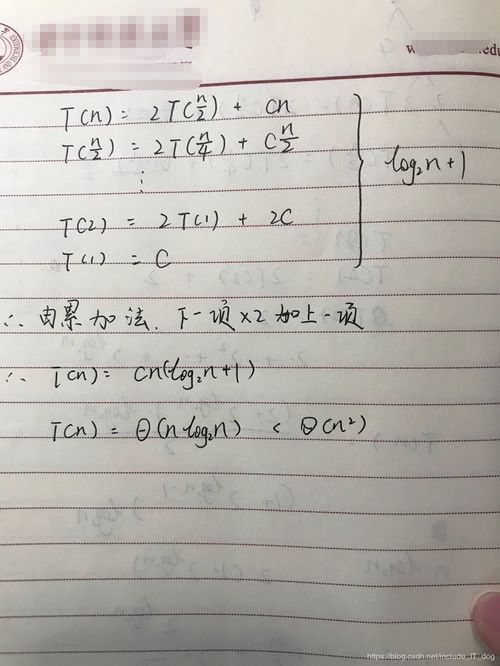 w
.edu
T(n) = 2T(n/2) + cn
T(n/2) = 2T(n/4) + C n/2
⋮
T(2) = 2T(1) + 2C
T(1) = C
log₂n+1
∴ 由累加法. 下一项×2 加上一项
∴ T(n) = cn(log₂n+1)
T(n) = Θ(n log₂n) < Θ(n²)
https://blog.csdn.net/include_IT_dog